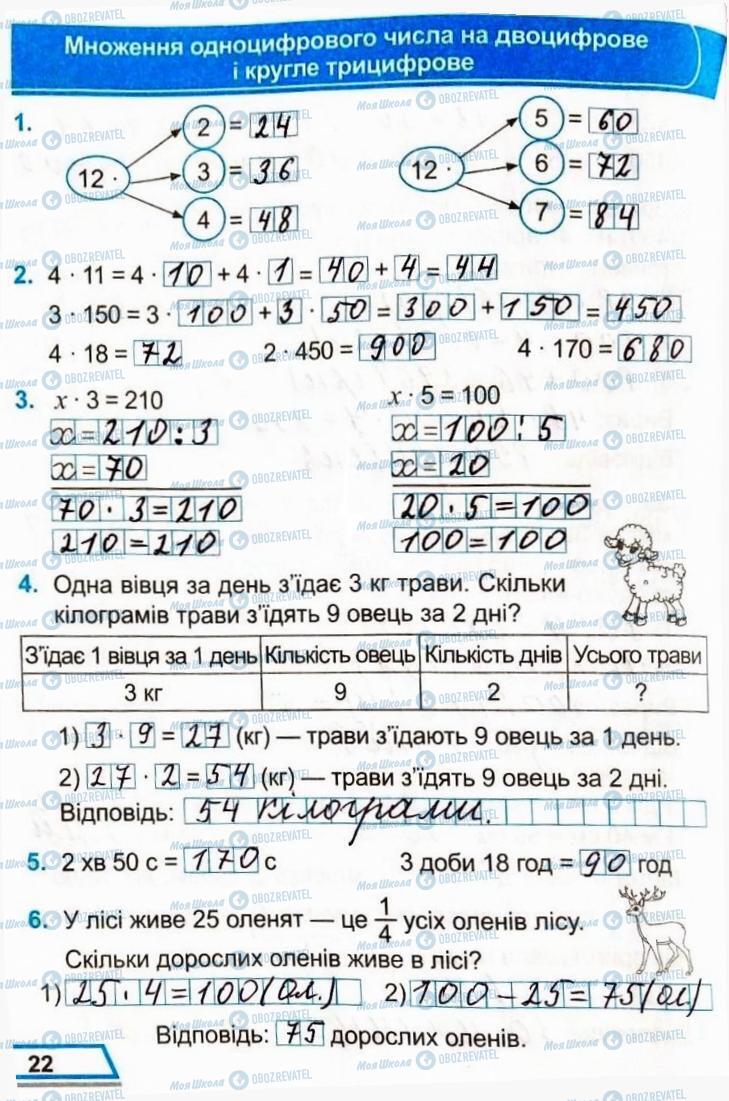 Множення одноцифрового числа на двоцифрове
і кругле трицифрове
1.
12 ·
2 = 24
3 = 36
4 = 48
12 ·
5 = 60
6 = 72
7 = 84
2. 4 · 11 = 4 · 10 + 4 · 1 = 40 + 4 = 44
3 · 150 = 3 · 100 + 3 · 50 = 300 + 150 = 450
4 · 18 = 72 2 · 450 = 900 4 · 170 = 680
3. x · 3 = 210
x = 210 : 3
x = 70
70 · 3 = 210
210 = 210
x · 5 = 100
x = 100 : 5
x = 20
20 · 5 = 100
100 = 100
4. Одна вівця за день з’їдає 3 кг трави. Скільки
кілограмів трави з’їдять 9 овець за 2 дні?
З’їдає 1 вівця за 1 день Кількість овець Кількість днів Усього трави
3 кг 9 2 ?
1) 3 · 9 = 27 (кг) — трави з’їдають 9 овець за 1 день.
2) 27 · 2 = 54 (кг) — трави з’їдять 9 овець за 2 дні.
Відповідь: 54 кілограми.
5. 2 хв 50 с = 170 с 3 доби 18 год = 90 год
6. У лісі живе 25 оленят — це 1/4 усіх оленів лісу.
Скільки дорослих оленів живе в лісі?
1) 25 · 4 = 100 (ол.) 2) 100 − 25 = 75 (ол)
Відповідь: 75 дорослих оленів.
22
Моя Школа OBOZREVATEL